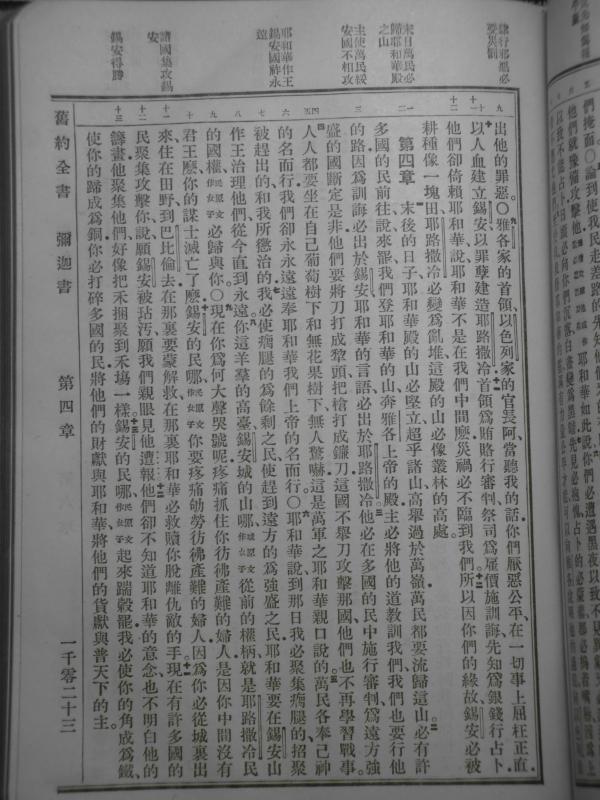 隸行邪慝必
要災罰
末日萬民必
歸耶和華殿
之山
主使萬民綏
安國不相攻
耶和華作王
錫安國祚永
遠
諸國集攻錫
安
錫安得勝
出他的罪惡〇雅各家的首領以色列家的官長阿當聽我的話你們厭惡公平在一切事上屈枉正直
以人血建立錫安以罪孽建造耶路撒冷首領爲賄賂行審判祭司爲雇價施訓誨先知爲銀錢行占卜
他們卻倚賴耶和華說耶和華不是在我們中間麽災禍必不臨到我們所以因你們的緣故錫安必被
耕種像一塊田耶路撒冷必變爲亂堆這殿的山必像叢林的高處
第四章 末後的日子耶和華殿的山必堅立超乎諸山高舉過於萬嶺萬民都要流歸這山必有許
多國的民前往說來罷我們登耶和華的山奔雅各上帝的殿主必將他的道教訓我們我們也要行他
的路因爲訓誨必出於錫安耶和華的言語必出於耶路撒冷他必在多國的民中施行審判爲遠方強
盛的國斷定是非他們要將刀打成犂頭把槍打成鐮刀這國不舉刀攻擊那國他們也不再學習戰事
人人都要坐在自己葡萄樹下和無花果樹下無人驚嚇這是萬軍之耶和華親口說的萬民各奉己神
的名而行我們卻永永遠遠奉耶和華我們上帝的名而行〇耶和華說到那日我必聚集瘸腿的招聚
被趕出的和我所懲治的我必使瘸腿的爲餘剩之民使趕到遠方的爲強盛之民耶和華要在錫安山
作王治理他們從今直到永遠你這羊羣的高臺錫安城的山哪城原文作女子從前的權柄就是耶路撒冷民
的國權民原文作女子必歸與你〇現在你爲何大聲哭號呢疼痛抓住你彷彿產難的婦人是因你中間沒有
君王麽你的謀士滅亡了麽錫安的民哪民原文作女子你要疼痛劬勞彷彿產難的婦人因爲你必從城裏出
來住在田野到巴比倫去在那裏要蒙解救在那裏耶和華必救贖你脫離仇敵的手現在有許多國的
民聚集攻擊你說願錫安被玷汚願我們親眼見他遭報他們卻不知道耶和華的意念也不明白他的
籌畫他聚集他們好像把禾捆聚到禾場一樣錫安的民哪民原文作女子起來踹穀罷我必使你的角成爲鐵
使你的蹄成爲銅你必打碎多國的民將他們的財獻與耶和華將他們的貨獻與普天下的主
舊約全書 彌迦書 第四章 一千零二十三